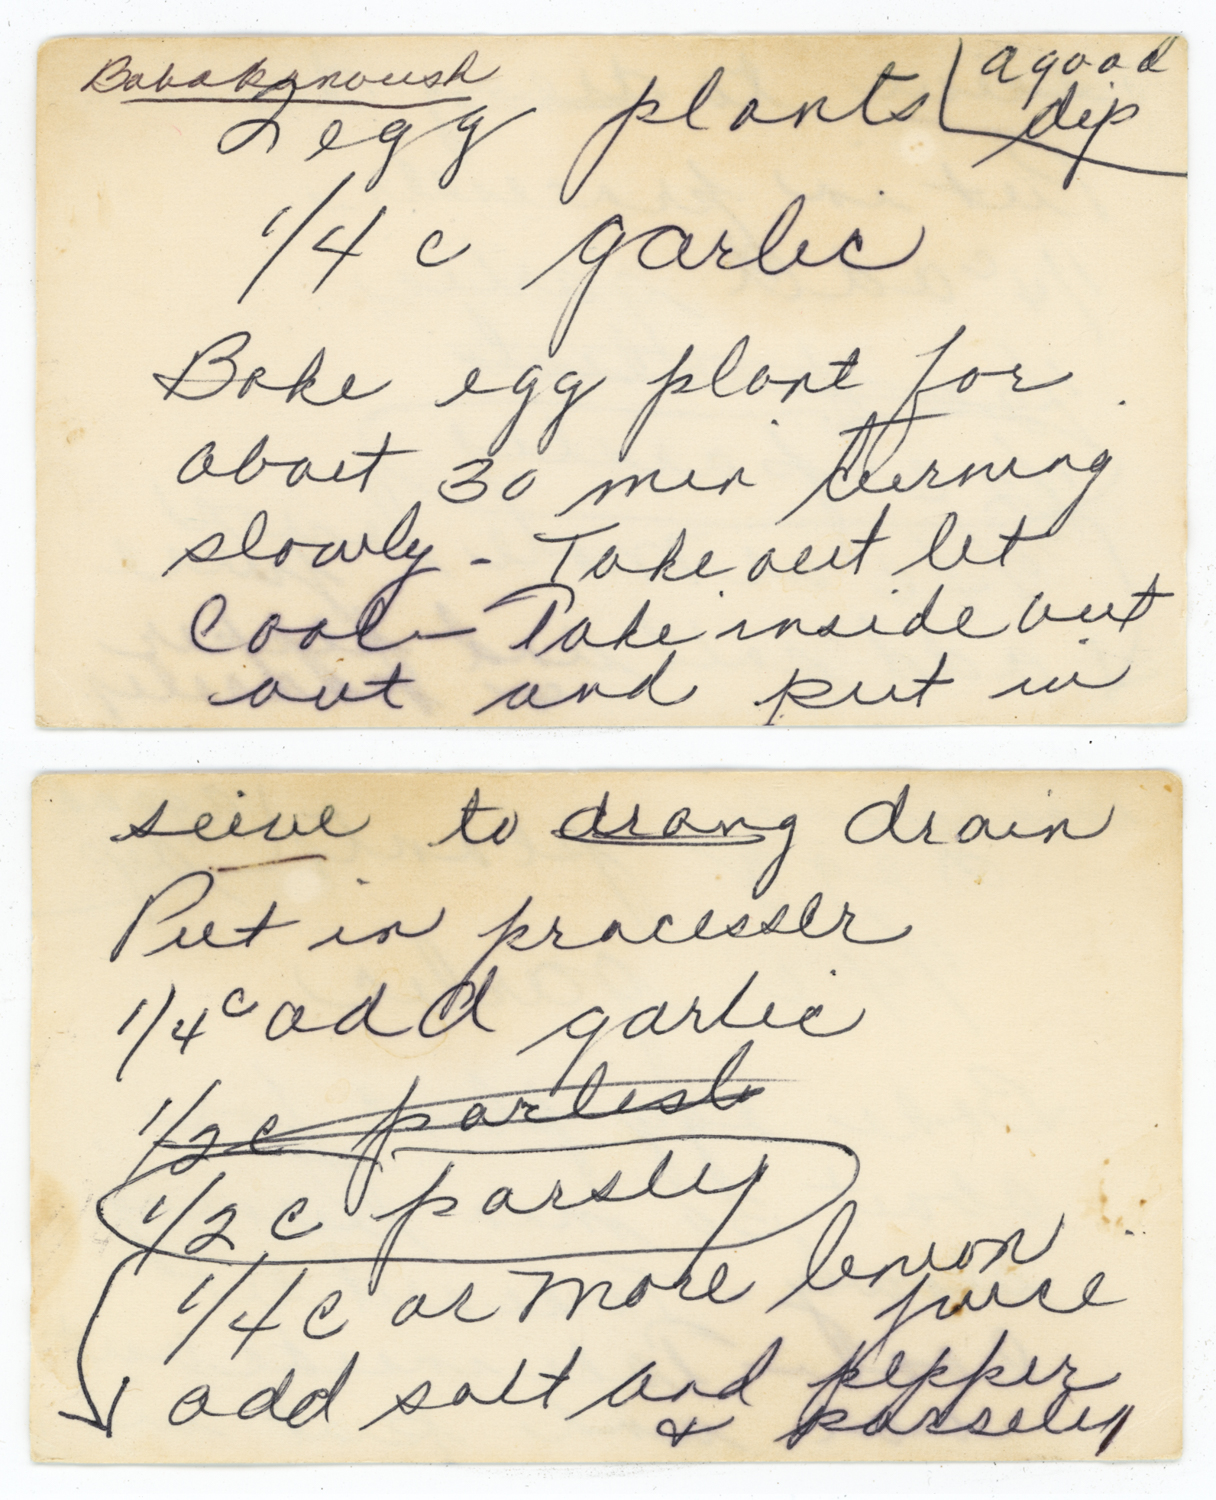 Babakanoush
2 egg plants
a good
dip
1/4 c garlic
Bake egg plant for
about 30 min turning
slowly - Take out let
cool - Take inside out
out and put in
seive to drang drain
Put in processer
1/4 c add garlic
1/2 c parlesl
1/2 c parsley
1/4 c or more lemon
juice
add salt and pepper
& parseley